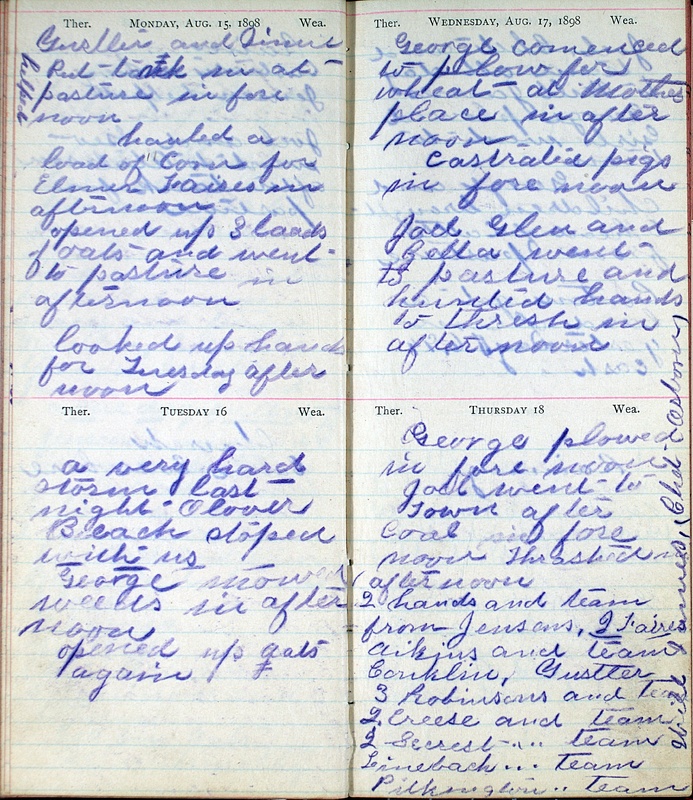 Ther. MONDAY, AUG. 15, 1898 Wea.
Gustler and
helped
Put back in at
pasture in fore
noon
hauled a
load of Corn for
Elmer Faires in
afternoon
opened up 3 loads
of oats and went
to pasture in
afternoon
looked up hands
for Tuesday after
noon
Ther. TUESDAY 16 Wea.
a very hard
storm last
night Olover
Beach stoped
with us
George mowed
weeds in after
noon
opened up oats
again
Ther. WEDNESDAY, AUG. 17, 1898 Wea.
George comenced
to plow for
wheat at Mothers
place in after
noon
Castrated pigs
in fore noon
Joel Glen and
went
to pasture and
hunted hands
to thresh in
afternoon
Ther. THURSDAY 18 Wea.
George plowed
in fore noon
Joel went to
Town after
Coal in fore
noon Thrashed in
afternoon
2 hands and team
from Jensons, 2 Faires
Aikins and team
Conklin, Gustler
3 Robinsons and team
2 Creese and team
2 Secrest " " team
Lineback " " team
Pilkington " " team
Chet Osborn